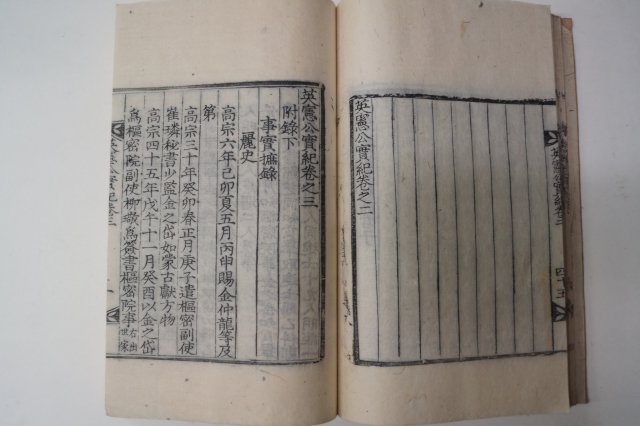 英憲公實紀卷之二
英憲公實紀卷之二
四十五
英憲公實紀卷之三
附錄下
事實摭錄
麗史
高宗六年己卯夏五月丙申賜金仲龍等及
第
高宗三十年癸卯春正月庚子遣樞密副使
崔璘秘書少監金之岱如蒙古獻方物
高宗四十五年戊午十一月癸酉以金之岱
爲樞密院副使柳璥爲簽書樞密院事右出世家
英憲公實紀卷三